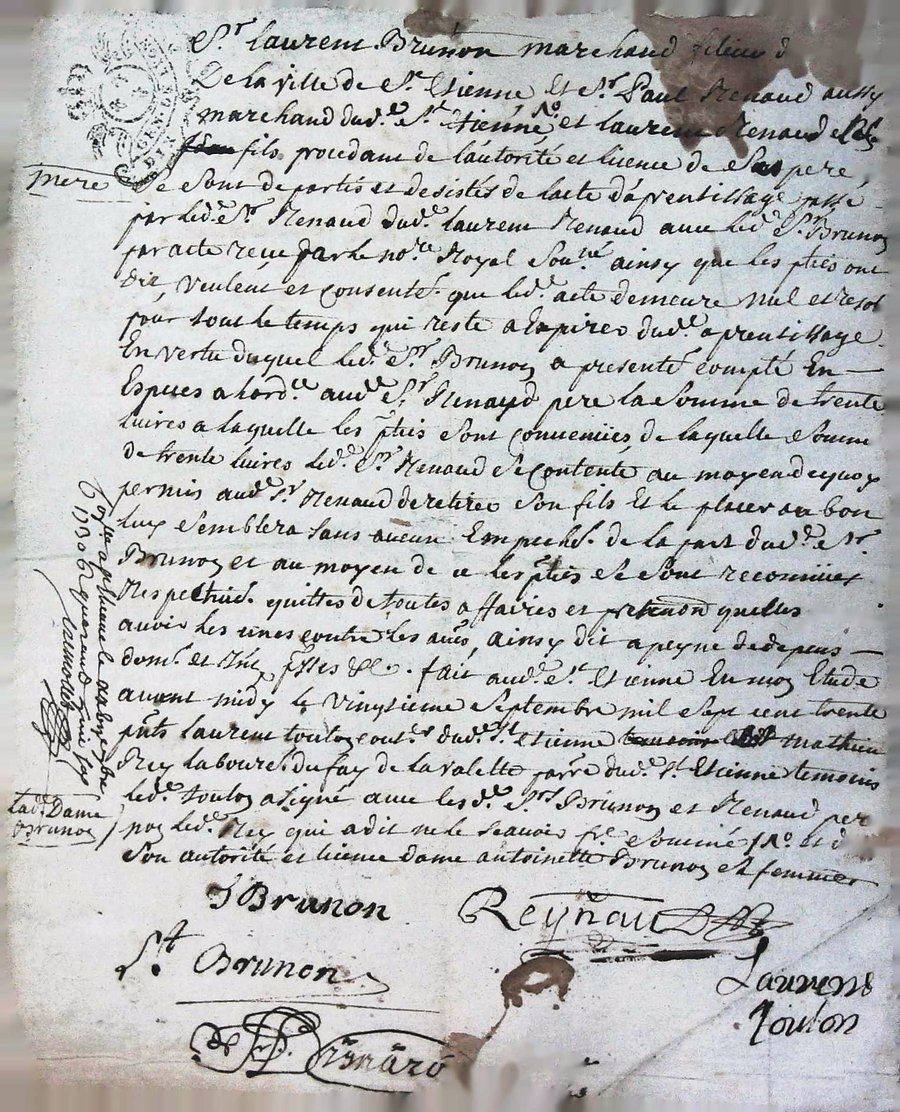 Sr laurent Brunon marchand
De la ville de St Etienne et Sr Paul Renaud aussy
marchand dud.e St Etienne, et laurent Renaud
fils, procedant de l'autorité et licence de Son pere,
mere
Se sont departis et desistés de l'acte d'aprentissage passé
par led.e Sr Renaud dud.e laurent Renaud avec led.e Sr Brunon
par acte receu par le no.re Royal Sou.né ainsy que les pties ont
dit, veulent et consente.t que led.e acte demeure nul et resol
pour tout le temps qui reste a Expirer dud.e aprentissage
En vertu duquel led.e Sr Brunon a presente.t compté En
Especes a aud.e Sr Renaud pere la Somme de trente
livres a laquelle les pties Sont convenües, de laquelle Somme
de trente livres led.e Sr Renaud Se contente au moyen dequoy
permis aud.e Sr Renaud de retirer Son fils Et le placer ou bon
luy Semblera Sans aucun Empeche.t de la part dud.e Sr
Brunon et au moyen de ce les pties Se Sont reconnües
Respective.t quittes de toutes affaires et
avoir les unes contre les au.es, ainsy dit a peyne de depens
dom.s et Int. &c. fait aud.e St Etienne En mon Etude
avant midy le vingtieme Septembre mil Sept cent trente
pnts laurent toulon dud.e St Etienne mathieu
Rey laboure.r du fay de la valette parre dud.e St Etienne temoins
led.e toulon a Signé avec lesd.e Srs Brunon et Renaud pere
non led.e Rey qui a dit ne le Scavoir
Son autorité et licence dame antoinette Brunon Sa femme
Lad.e Dame
Brunon
1730
J Brunon
Reynaud
St Brunon
Laurens
Toulon